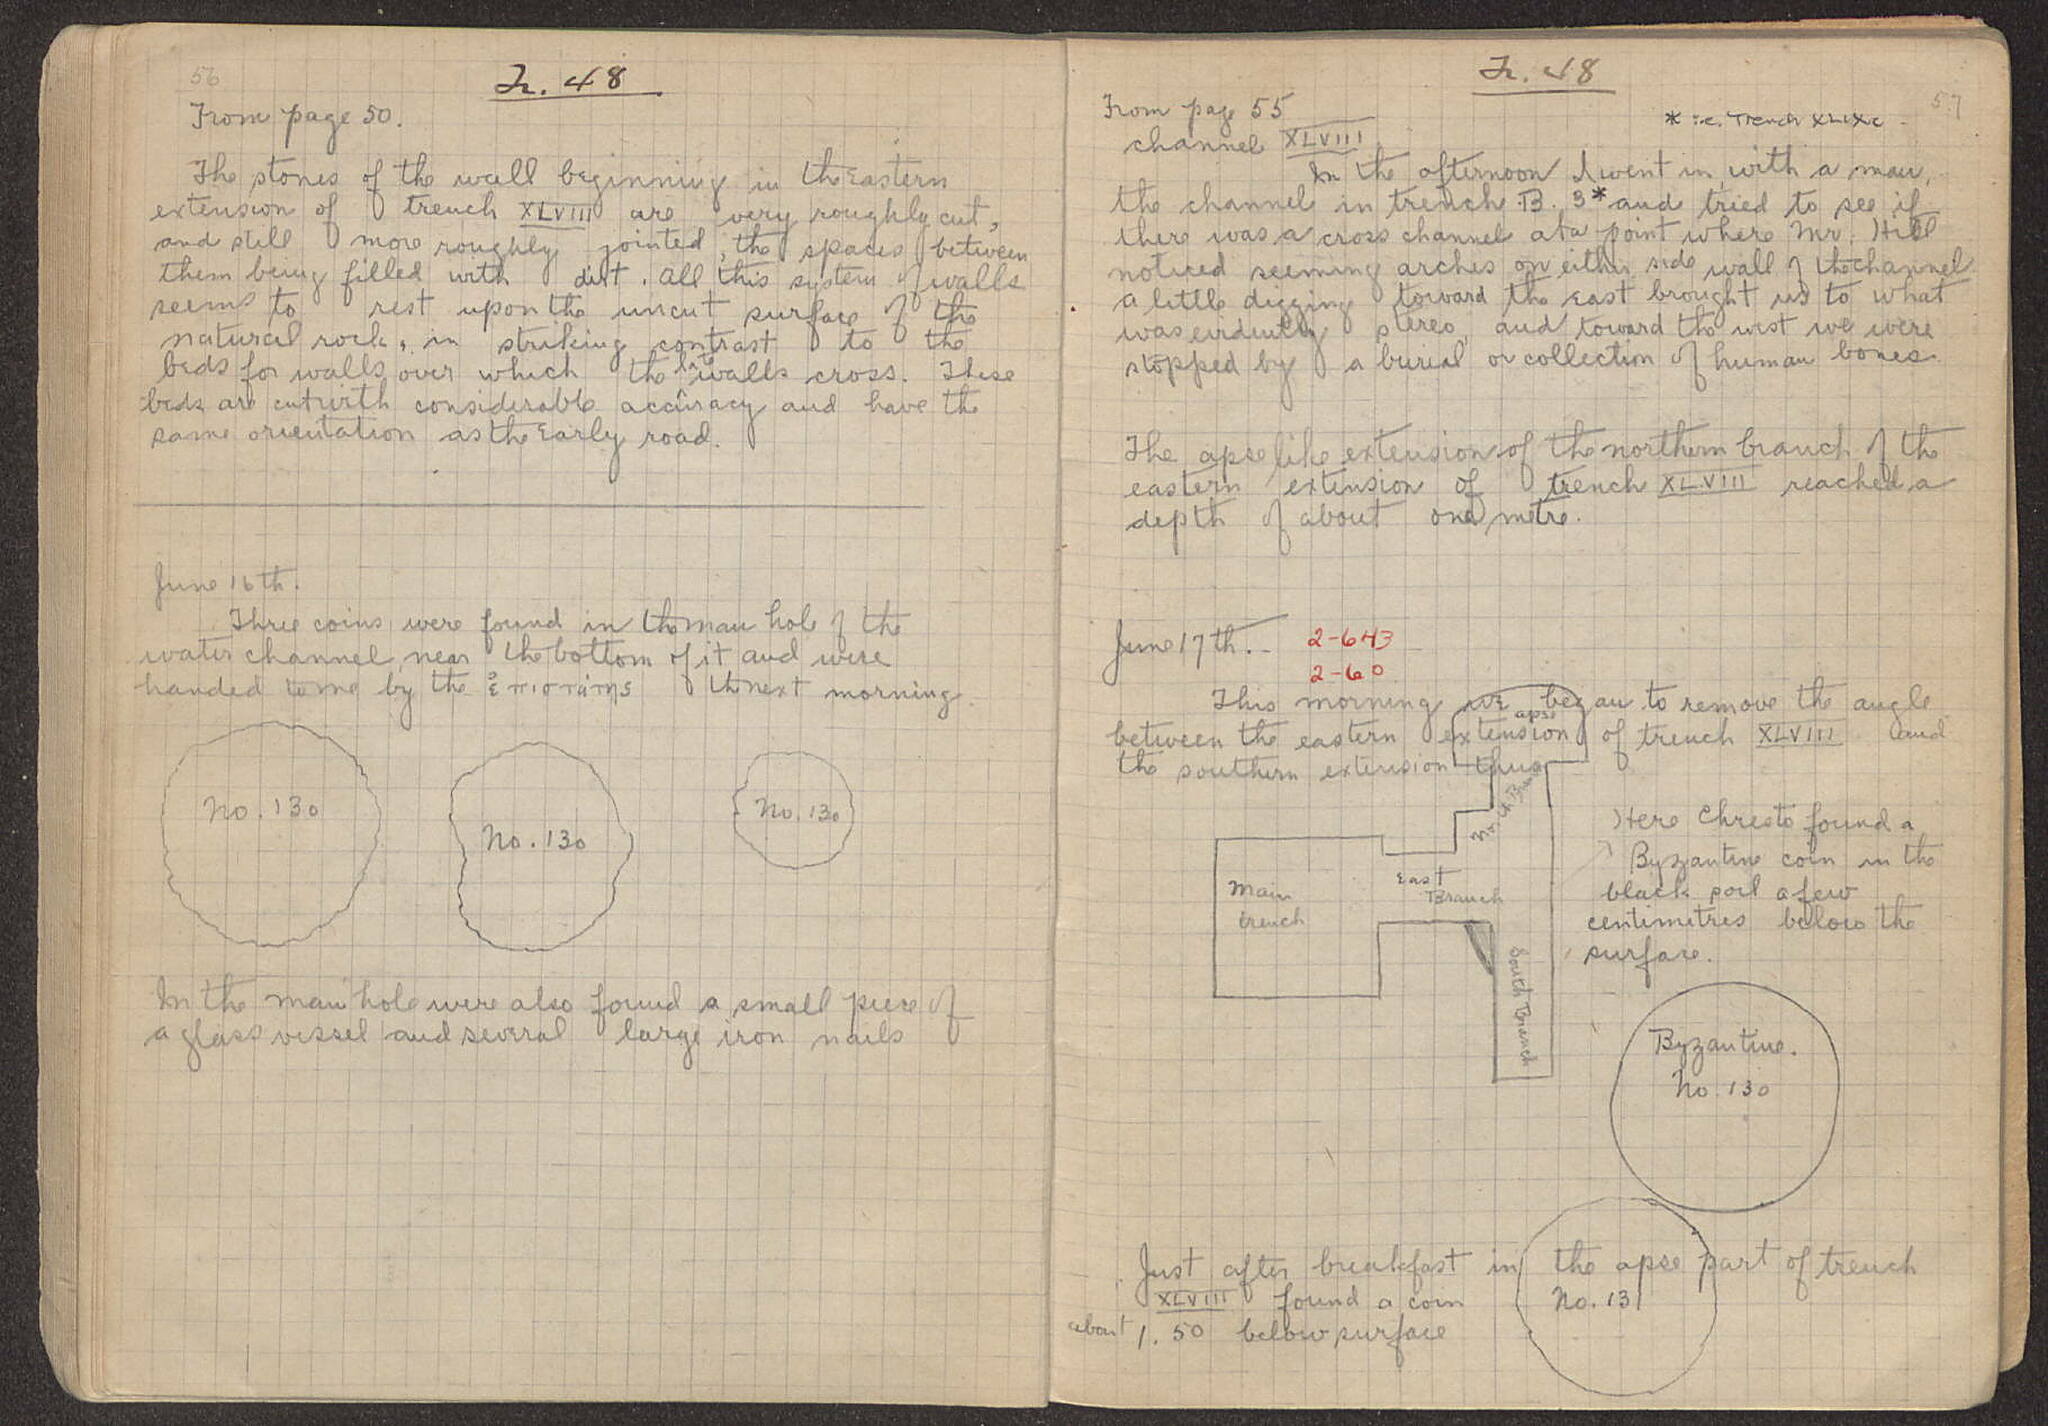 56
Tr. 48
From page 50.
The stones of the wall beginning in the Eastern
extension of trench XLVIII are very roughly cut,
and still more roughly jointed, the spaces between
them being filled with dirt. All this system of walls
seems to rest upon the uncut surface of the
natural rock, in striking contrast to the
beds for walls over which the walls cross. These
beds are cut with considerable accuracy and have the
same orientation as the Early road.
June 16th.
Three coins were found in the man hole of the
water channel, near the bottom of it and were
handed to me by the ἐπιστάτης the next morning.
No. 130
No. 130
No. 130
In the man hole were also found a small piece of
a glass vessel and several large iron nails
Tr. 48
57
From page 55
* i.e. Trench XLIXc
channel XLVIII
In the afternoon I went in with a man,
the channel in trench B. 3* and tried to see if
there was a cross channel at a point where Mr. Hill
noticed seeming arches on either side wall of the channel
a little digging toward the east brought us to what
was evidently stereo, and toward the west we were
stopped by a burial or collection of human bones.
The apse like extension of the northern branch of the
eastern extension of trench XLVIII reached a
depth of about one metre.
June 17th.
2-643
2-60
This morning we began to remove the angle
between the eastern extension of trench XLVIII and
the southern extension thus
apse
North Branch
Main
trench
East
Branch
South Branch
Here Christo found a
Byzantine coin in the
black soil a few
centimetres below the
surface.
Byzantine.
No. 130
Just after breakfast in the apse part of trench
XLVIII found a coin
No. 131
about 1.50 below surface